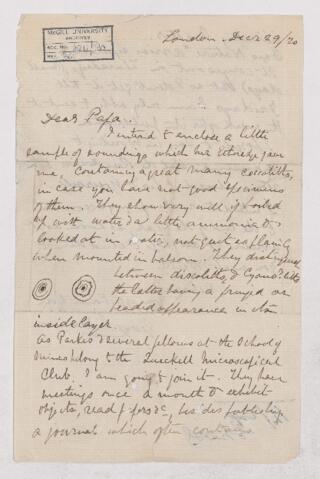 McGILL UNIVERSITY
ARCHIVES
ACC. NO.
REF.
London. Decr 29/70
Dear Papa.
I intend to enclose a little
sample of soundings which Mr Etheridge gave
me, containing a great many coccoliths,
in case you have not good specimens
of them. They show very well if boiled
up with water & a little ammonia &
looked at in water, not quite so plainly
when mounted in balsam. They distinguish
between discoliths & Cyatholiths
the latter having a fringed or
beaded appearance in the
inside layer.
As Parker & several fellows at the School of
Mines belong to the Quekett Microscopical
Club, I am going to join it. They have
meetings once a month to exhibit
objects, read papers &c, besides publishing
a journal which often contains